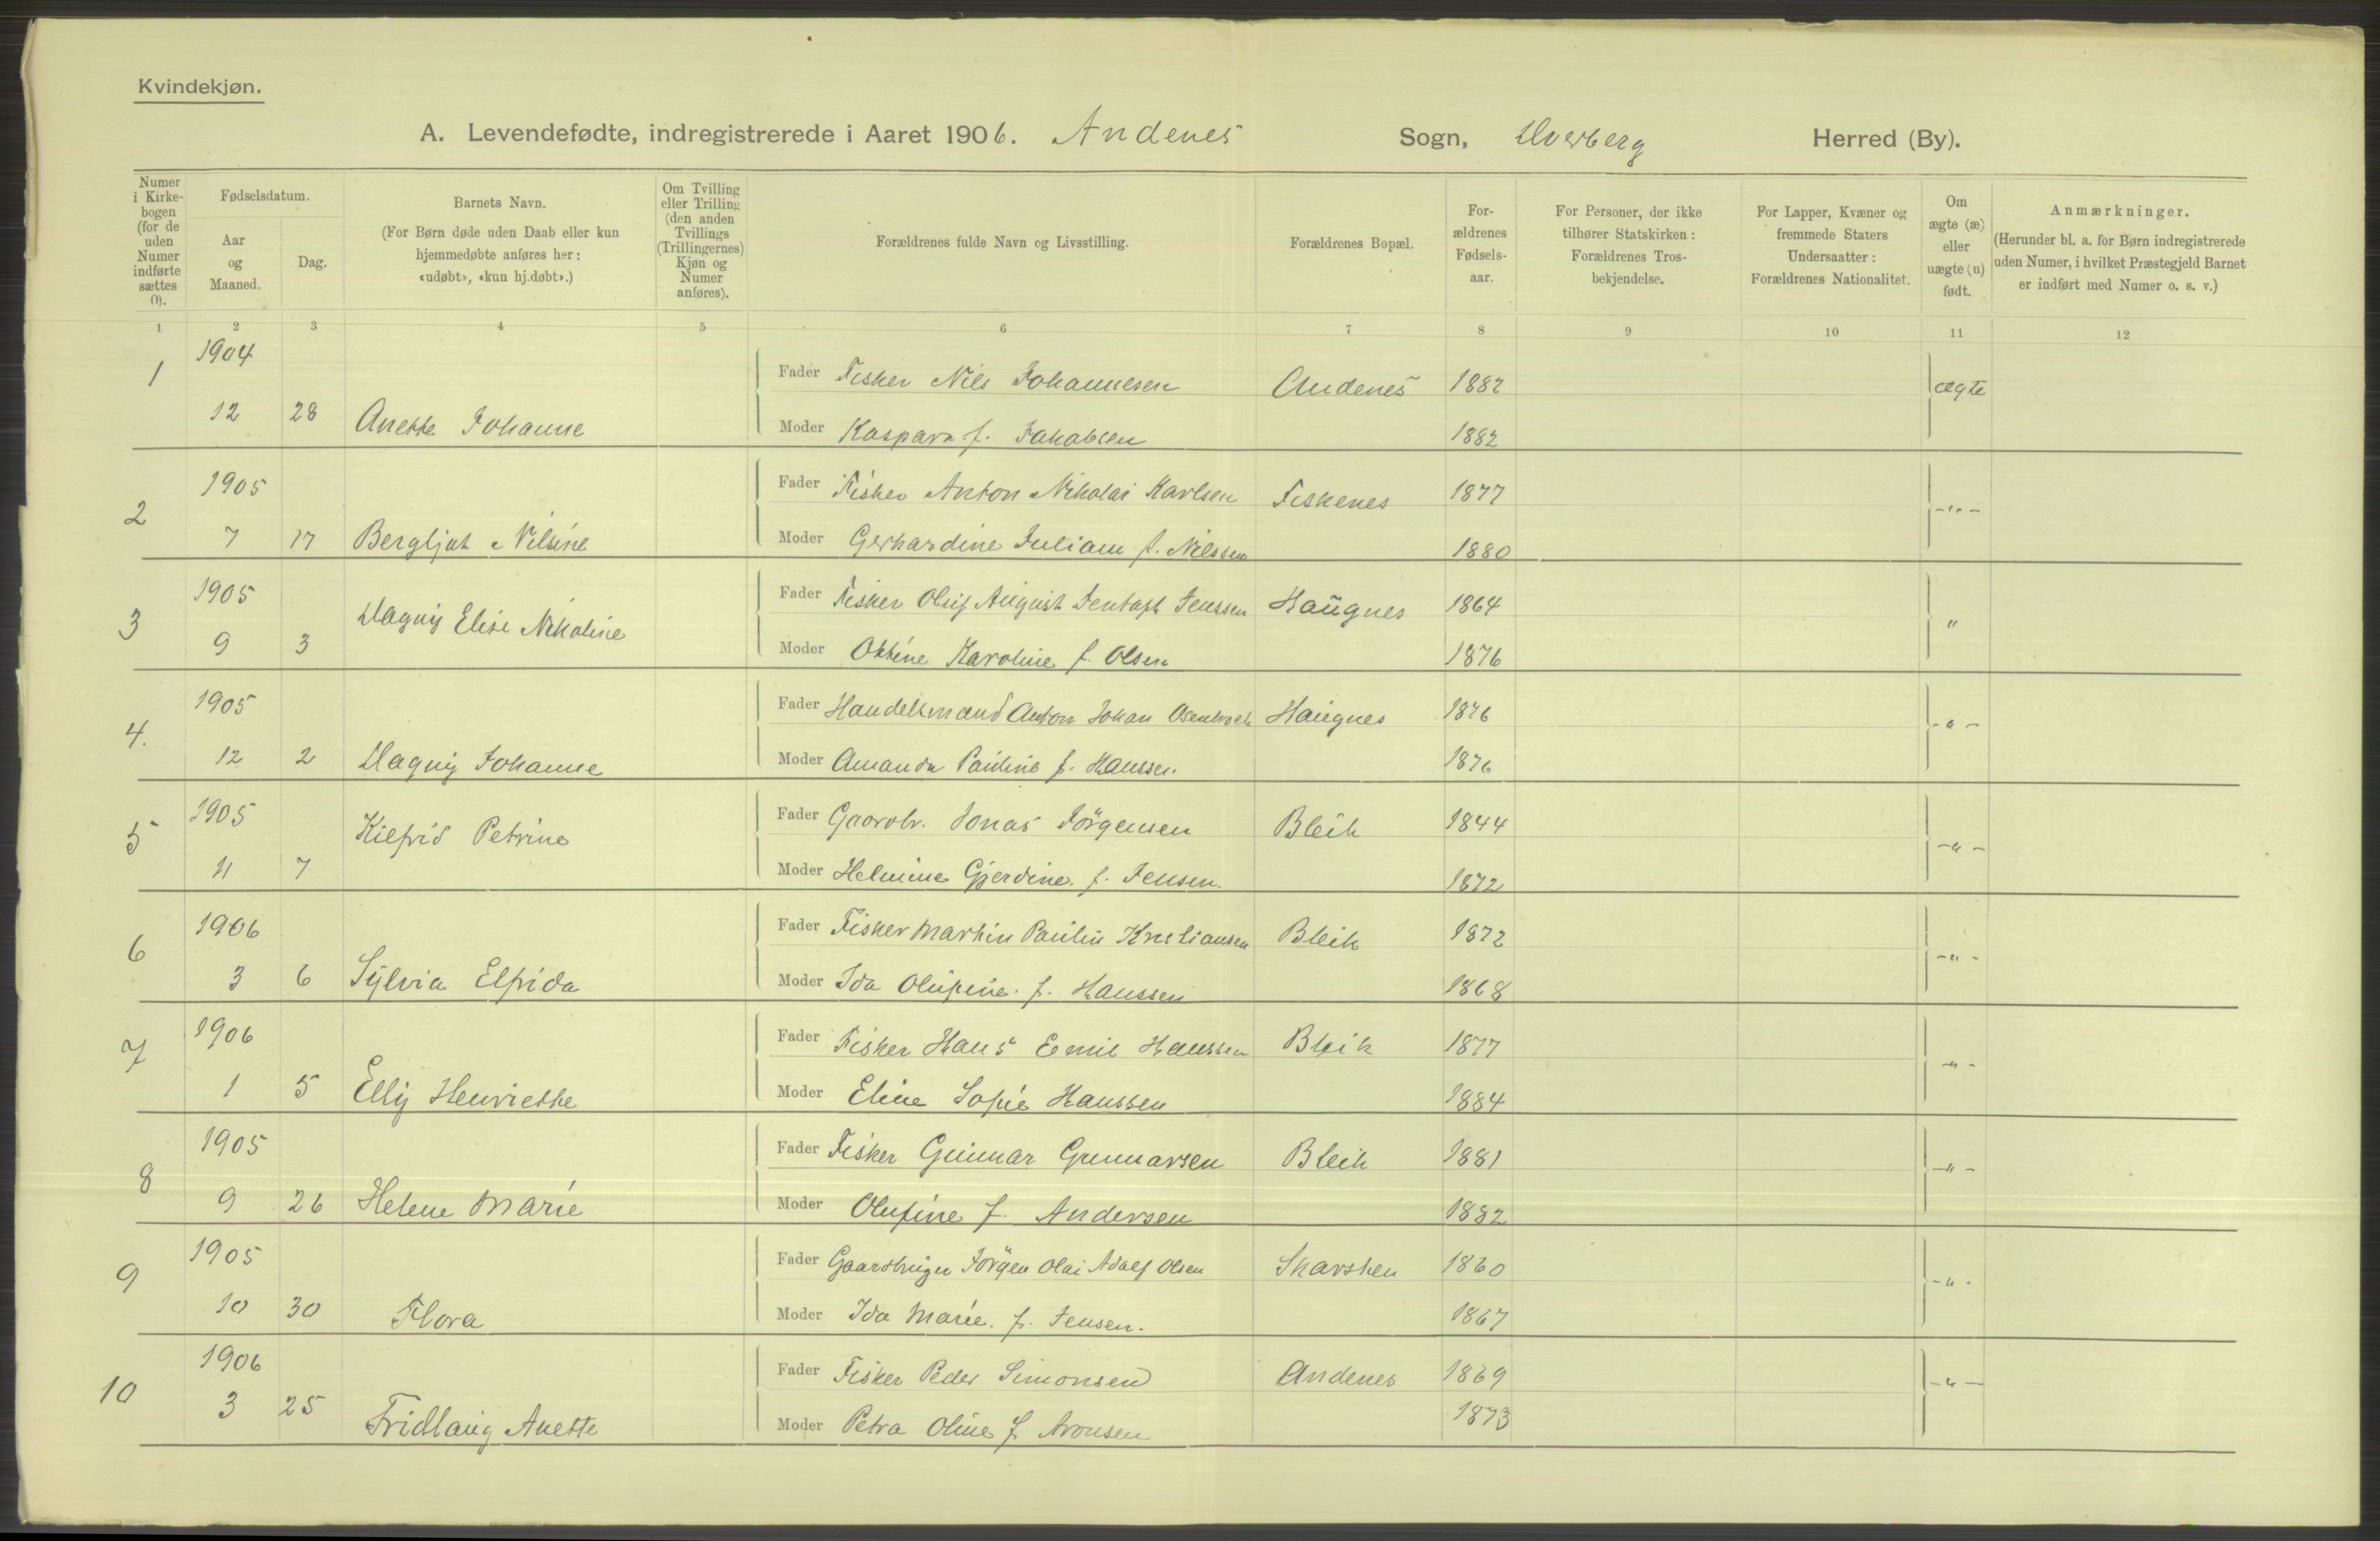 Kvindekjøn.
A. Levendefødte, indregistrerede i Aaret 1906. Andenes Sogn, Dverberg Herred (By).
Numer i Kirkebogen (for de uden Numer indførte sættes 0).
Fødselsdatum.
Aar og Maaned.
Dag.
Barnets Navn.
(For Børn døde uden Daab eller kun hjemmedøbte anføres her: «udøbt», «kun hj.døbt».)
Om Tvilling eller Trilling (den anden Tvillings (Trillingernes) Kjøn og Numer anføres).
Forældrenes fulde Navn og Livsstilling.
Forældrenes Bopæl.
Forældrenes Fødselsaar.
For Personer, der ikke tilhører Statskirken: Forældrenes Trosbekjendelse.
For Lapper, Kvæner og fremmede Staters Undersaatter: Forældrenes Nationalitet.
Om ægte (æ) eller uægte (u) født.
Anmærkninger.
(Herunder bl. a. for Børn indregistrerede uden Numer, i hvilket Præstegjeld Barnet er indført med Numer o. s. v.)
1 2 3 4 5 6 7 8 9 10 11 12
1 1904 Fader Fisker Nils Johannesen Andenes 1882 ægte
12 28 Anette Johanne Moder Kaspara f. Jakobsen 1882
2 1905 Fader Fisker Anton Nikolai Karlsen Fiskenes 1877 -"-
7 17 Bergljot Nilsine Moder Gerhardine Juliane f. Nilssen 1880
3 1905 Dagny Elise Nikoline Fader Fisker Oluf August Jentoft Jenssen Haugnes 1864 "
9 3 Moder Oktine Karoline f. Olsen 1876
4. 1905 Fader Handelsmand Anton Johan Haugnes 1876 -"-
12 2 Dagny Johanne Moder Amanda Pauline f. Hanssen. 1876
5 1905 Kilfrid Petrine Fader Gaardbr. Jonas Jörgensen Bleik 1844 -"-
11 7 Moder Helmine Gjerdine. f. Jensen. 1872
6 1906 Fader Fisker Martin Paulin Kristiansen Bleik 1872 -"-
3 6 Sylvia Elfrida Moder Ida Olufine. f. Hanssen 1868
7 1906 Fader Fisker Hans Emil Hanssen Bleik 1877 -"-
1 5 Elly Henriethe Moder Eline Sofie Hanssen 1884
8 1905 Fader Fisker Gunnar Gunnarsen Bleik 1881 -"-
9 26 Helene Marie Moder Olufine f. Andersen 1882
9 1905 Fader Gaardbruger Jörgen Olai Adolf Olsen Skarsten 1860 -"-
10 30 Flora Moder Ida Marie. f. Jensen. 1867
10 1906 Fader Fisker Peder Simonsen Andenes 1869 -"-
3 25 Fridlaug Anette Moder Petra Oline f Aronsen 1873